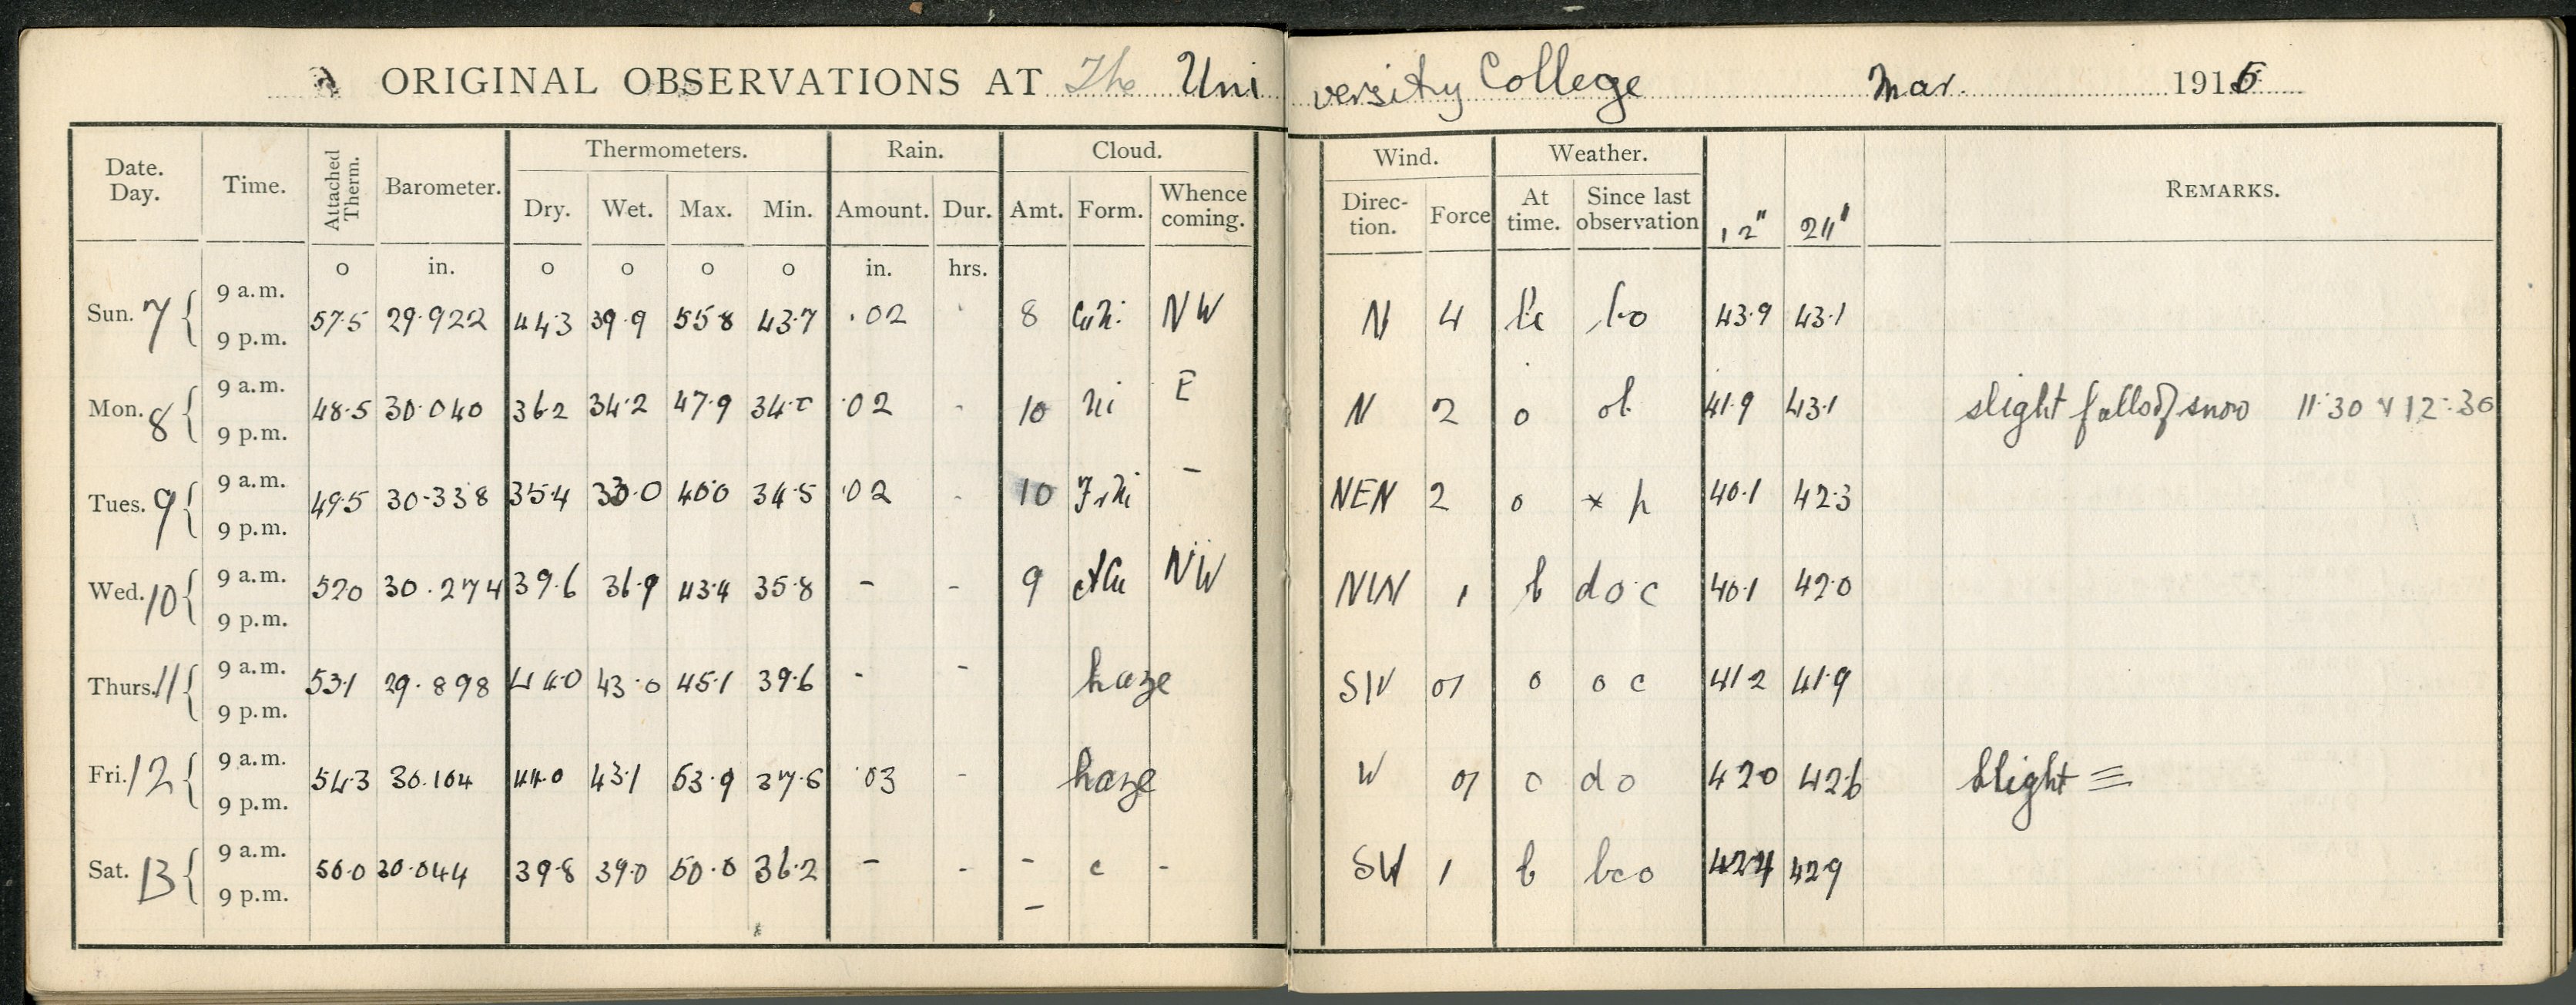 ORIGINAL OBSERVATIONS AT The University College Mar. 1915
Thermometers. Rain. Cloud. Wind. Weather.
Date. Day. Time. Attached Therm. Barometer. Dry. Wet. Max. Min. Amount. Dur. Amt. Form. Whence coming. Direc-tion. Force At time. Since last observation 12" 24" REMARKS.
o in. o o o o in. hrs.
9 a.m.
Sun. 7 57.5 29.922 44.3 39.9 55.8 43.7 .02 8 CuNi NW N 4 bc bo 43.9 43.1
9 p.m.
9 a.m.
Mon. 8 48.5 30.040 36.2 34.2 47.9 34.0 .02 - 10 Ni E N 2 o ob 41.9 43.1 slight falls of snow 11.30 & 12.30
9 p.m.
9 a.m.
Tues. 9 49.5 30.338 35.4 33.0 40.0 34.5 .02 - 10 FrNi - NEN 2 o * p 40.1 42.3
9 p.m.
9 a.m.
Wed. 10 52.0 30.274 39.6 36.9 43.4 35.8 - - 9 ACu NW NW 1 b d o c 40.1 42.0
9 p.m.
9 a.m.
Thurs. 11 53.1 29.898 44.0 43.0 45.1 39.6 - - haze SW 01 o o c 41.2 41.9
9 p.m.
9 a.m.
Fri. 12 54.3 30.104 44.0 43.1 53.9 37.8 .03 - haze W 01 c d o 42.0 42.6 slight ≡
9 p.m.
9 a.m.
Sat. 13 56.0 30.044 39.8 39.0 50.0 36.2 - - - c - SW 1 b bco 42.4 42.9
9 p.m. -